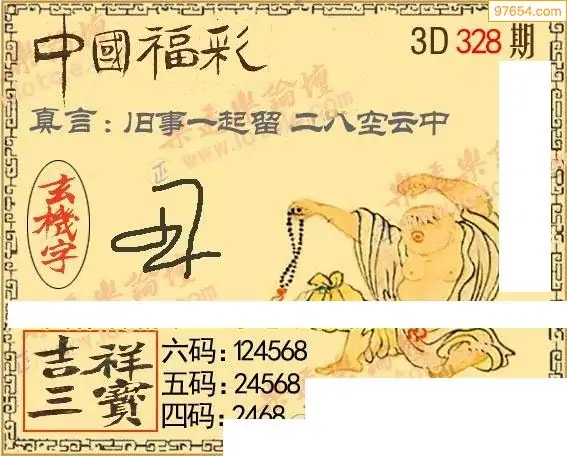 97654.com
中國福彩
3D 328 期
真言：旧事一起留 二八空云中
玄機字
丑
吉祥
三寶
六码：124568
五码：24568
四码：2468